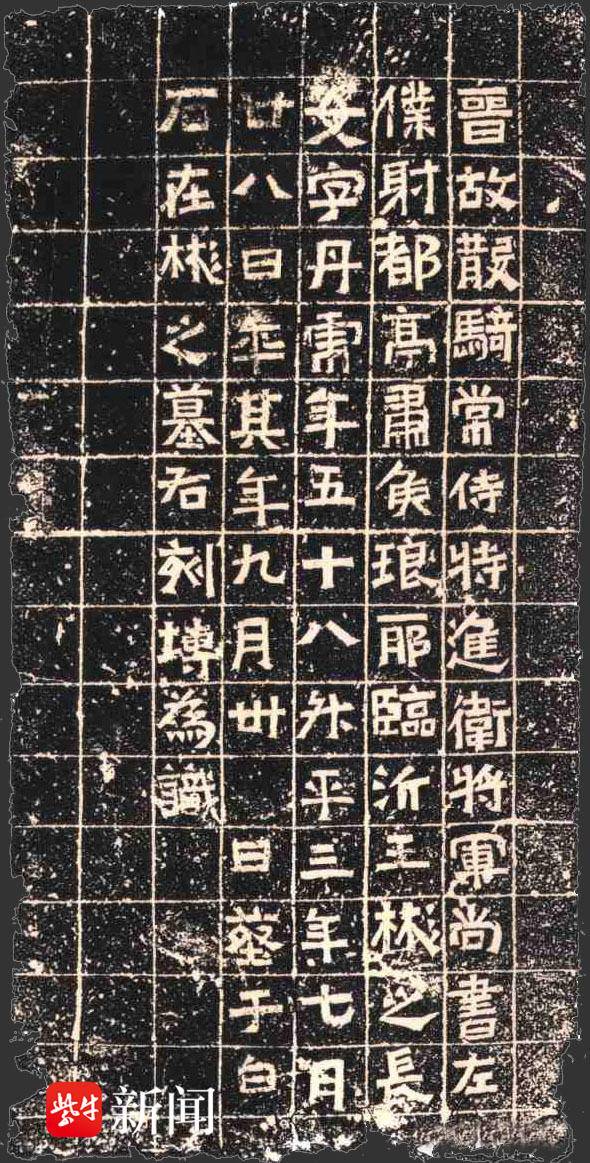 晉故散騎常侍特進衛將軍尚書左
僕射都亭肅侯琅耶臨沂王彬之長
女字丹虎年五十八升平三年七月
廿八日卒其年九月卅日葬于白
石在彬之墓右刻塼為識
紫牛新闻